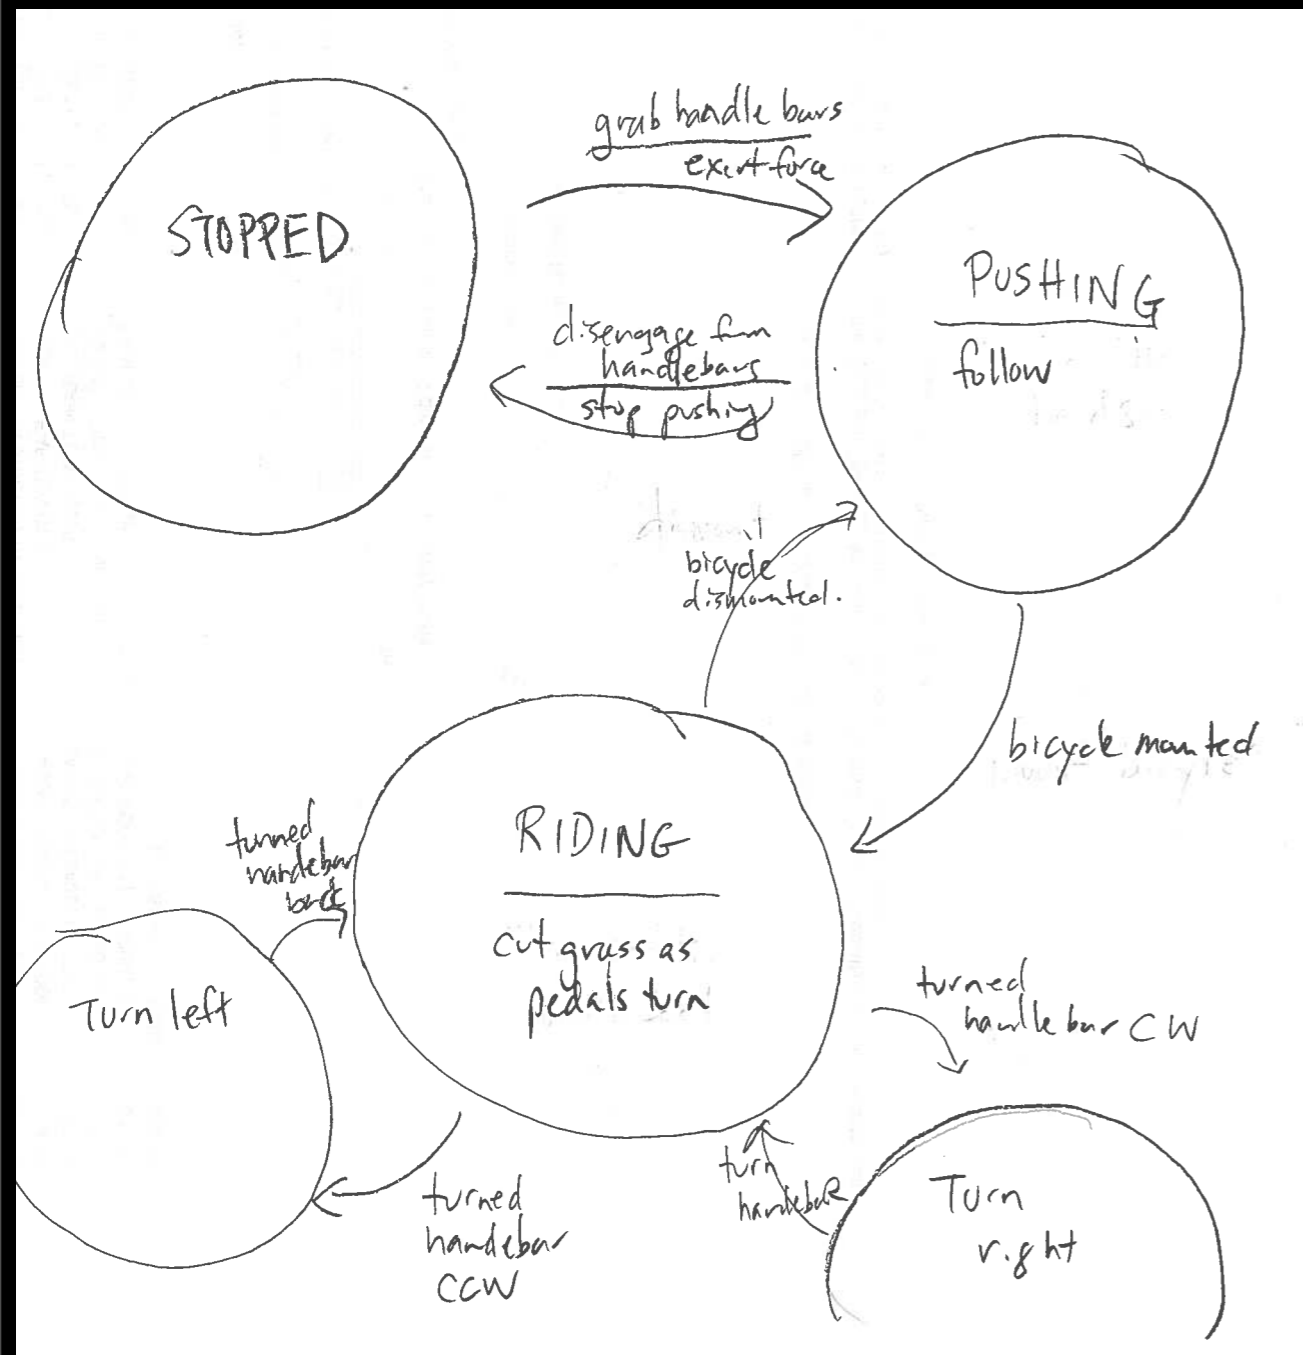 STOPPED
grab handle bars
exert force
PUSHING
follow
disengage from
handlebars
stop pushing
bicycle
dismounted.
bicycle mounted
RIDING
cut grass as
pedals turn
turned
handebar
back
Turn left
turned
handle bar CW
turned
handebar
CCW
turn
handebar
Turn
right